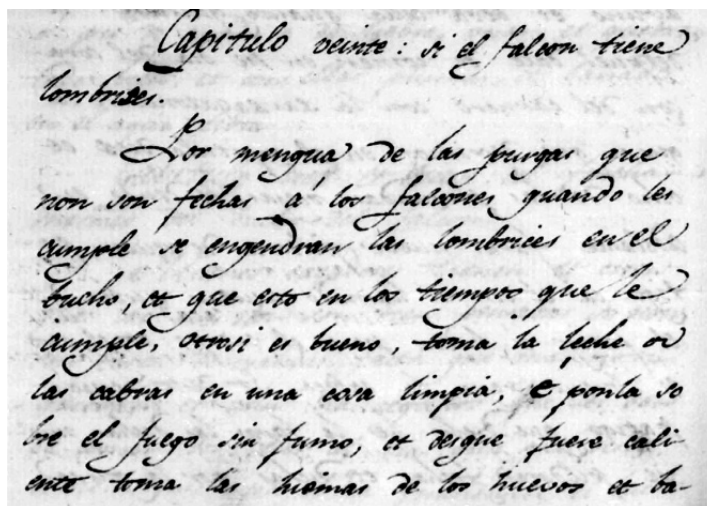 Capitulo veinte: si el falcon tiene
lombrizes.
Por mengua de las purgas que
non son fechas á los falcones quando les
cumple se engendran las lombrices en el
bucho, et que esto en los tiempos que le
cumple, otrosi es bueno, toma la leche de
las cabras en una cosa limpia, é ponla so
bre el fuego sin fumo, et desque fuere cali-
ente toma las hiemas de los huevos et ba-